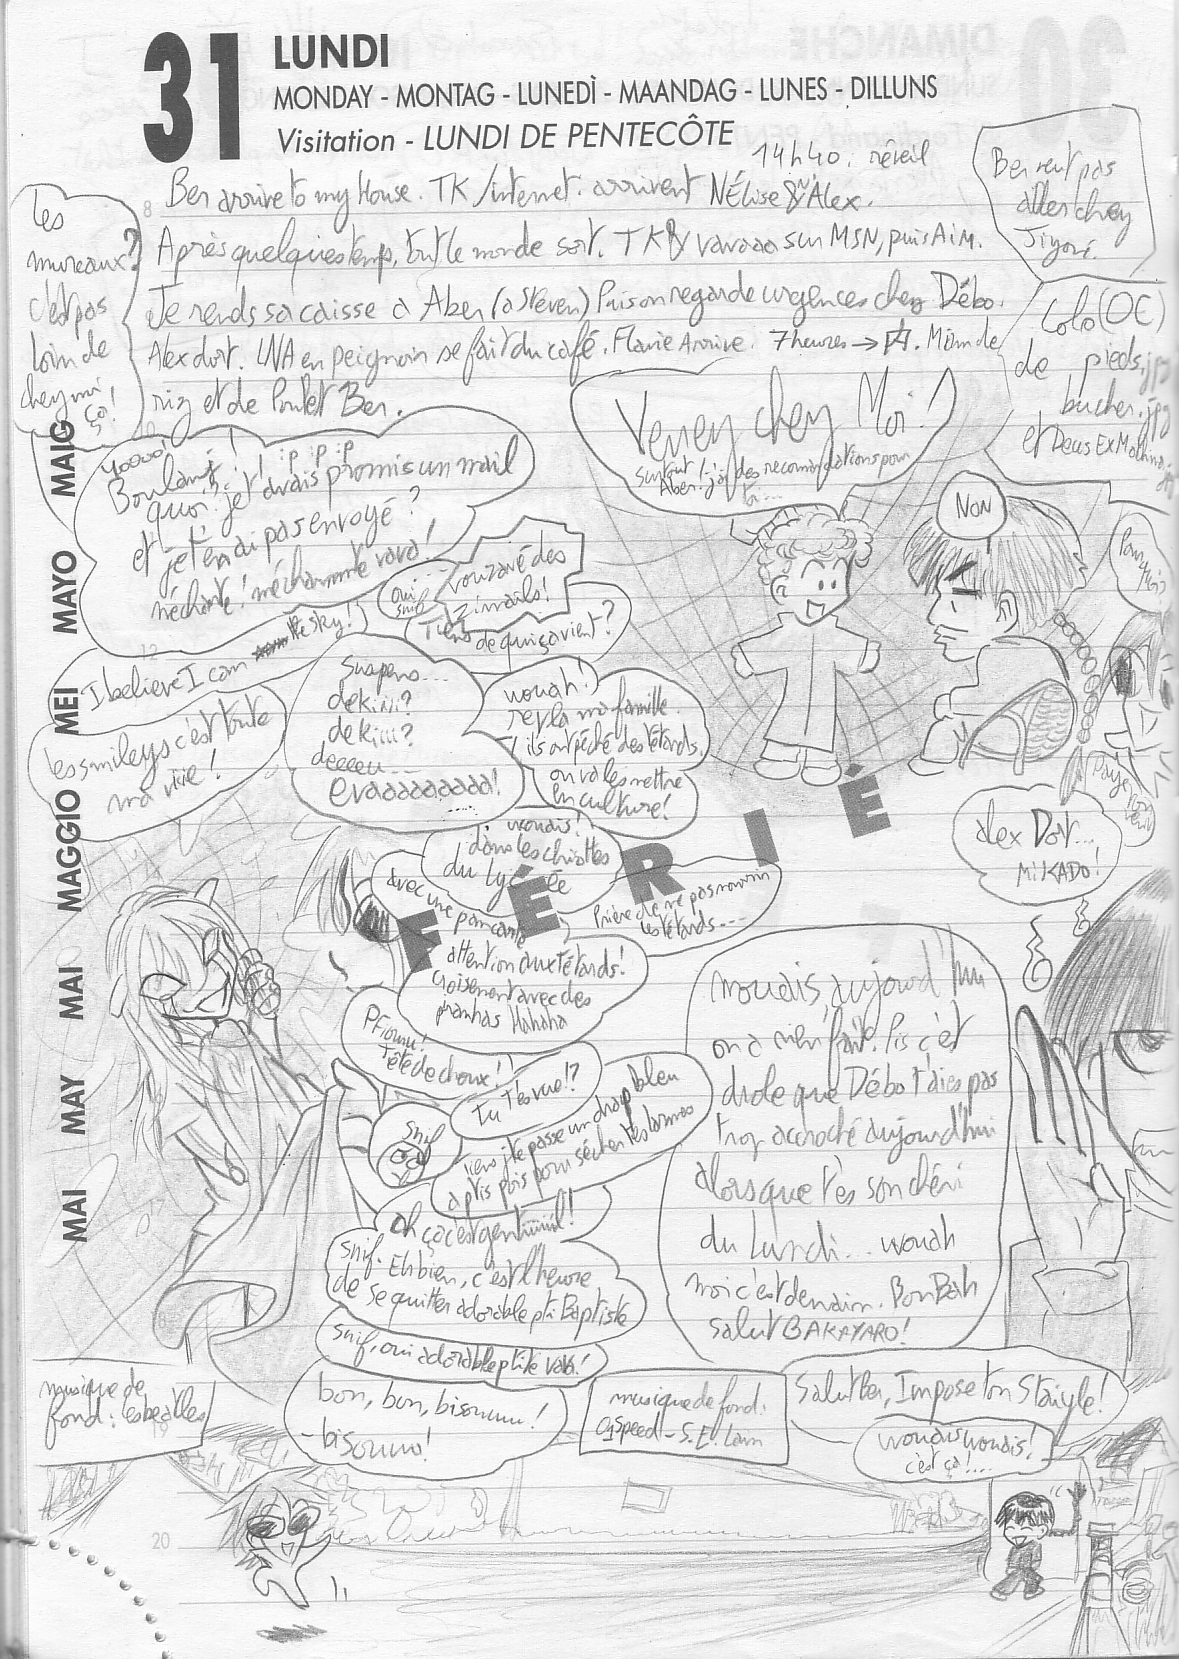 31 LUNDI
MONDAY - MONTAG - LUNEDÌ - MAANDAG - LUNES - DILLUNS
Visitation - LUNDI DE PENTECÔTE
14h40. réveil
Ben arrive to my House. TK/internet. arrivent NÉlise & Alex.
Après quelques temps, tout le monde sort. TK & vavaaa sur MSN, puis AiM.
Je rends sa caisse à Aber (à Steven) Puis on regarde urgences chez Débo.
Alex dort. LNA en peignoir se fait du café. Flavie Arrive. 7 heures → Miam de
riz et de Poulet Ben.
Les
mureaux?
c'est pas
loin de
chez moi,
ça!
Ben veut pas
aller chez
Colo (OC)
de pieds.jpg
bucher.jpg
et Deus Ex Machina.jpg
Venez chez Moi!
surtout
Aber! j'ai des recommandations pour
toi...
NON
Pourquoi?
Yoooo!
Boulanit! :p :p :p
quoi? je t'avais promis un mail
et je t'en ai pas envoyé?
méchante! méchammte vava!
oui...
snif
vouzavé des
zimails!
Tiens de qui ça vient?
I believe I can the sky!
les smileys c'est toute
ma viiie!
Suspens...
dekiiii?
dekiiii?
deeeeu...
evaaaaaaaaa!
.....
wouah!
ils ont pêché des têtards.
on va les mettre
en culture!
wouais!
dans les chiottes
du Lycée
FÉRIÉ
avec une pancarte
Prière de ne pas nourrir
les têtards....
attention aux têtards!
croisement avec des
piranhas Hahaha
Pfiouuu!
tête de choux!!
Tu t'es vue!?
Snif
tiens j'te passe un drap bleu
à ptis pois pour sécher tes larmes
oh ça c'est gentiiiiil!
snif. Eh bien, c'est l'heure
de se quitter adorable pti Baptiste
snif, oui adorable ptite vava!
bon, bon, bisouuuu!
- bisouuu!
alex Dort...
MiKADO!
mouais, aujourd'hui
on a rien fait. Pis c'est
drole que Débo t'aies pas
trop accroché aujourd'hui
alors que t'es son chéri
du Lundi... wouah
moi c'est demain. Bon Bah
salut BAKAYARO!
musique de
fond: les beatles
musique de fond:
Salut Ben, Impose ton Staiyle!
wouais wouais!
c'est ça!....
MAI MAY MAI MAGGIO MEI MAYO MAIG
8
10
12
19
20